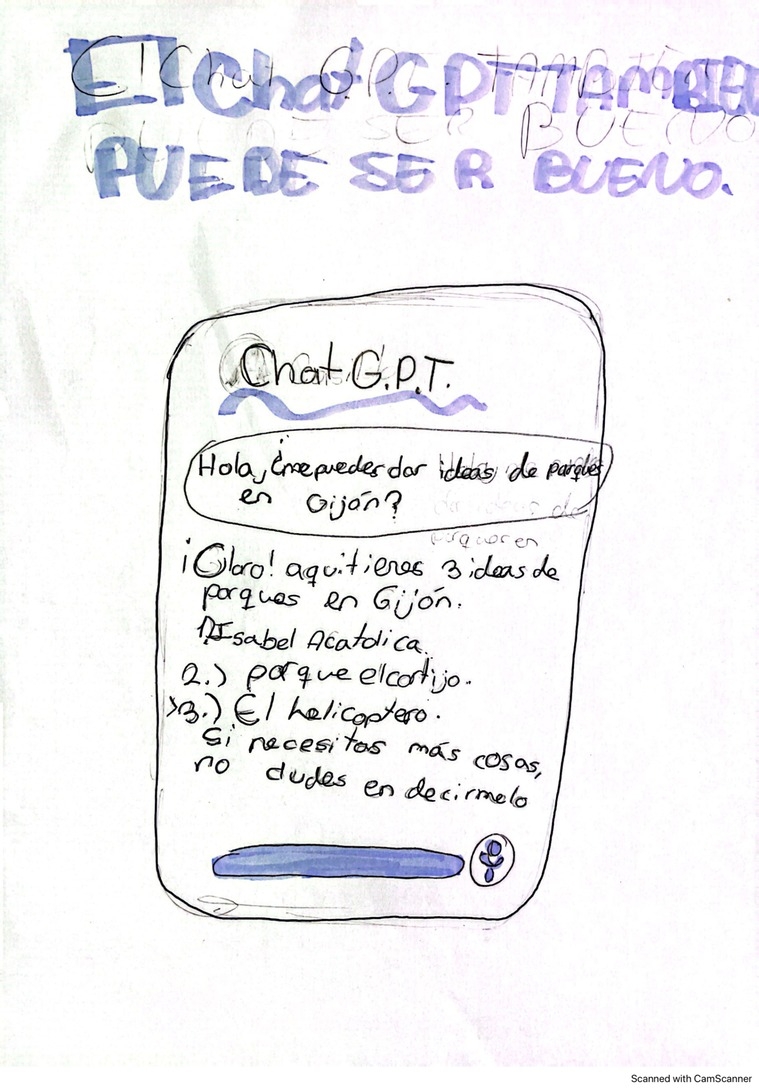 El Chat GPT TAMBIEN
PUEDE SER BUENO.
Chat G.P.T.
Hola, ¿me puedes dar ideas de parques
en Gijón?
¡Claro! aquí tienes 3 ideas de
parques en Gijón.
1) Isabel Acatolica.
2.) parque el cortijo.
3.) El helicoptero.
Si necesitas más cosas,
no dudes en decirmelo
Scanned with CamScanner